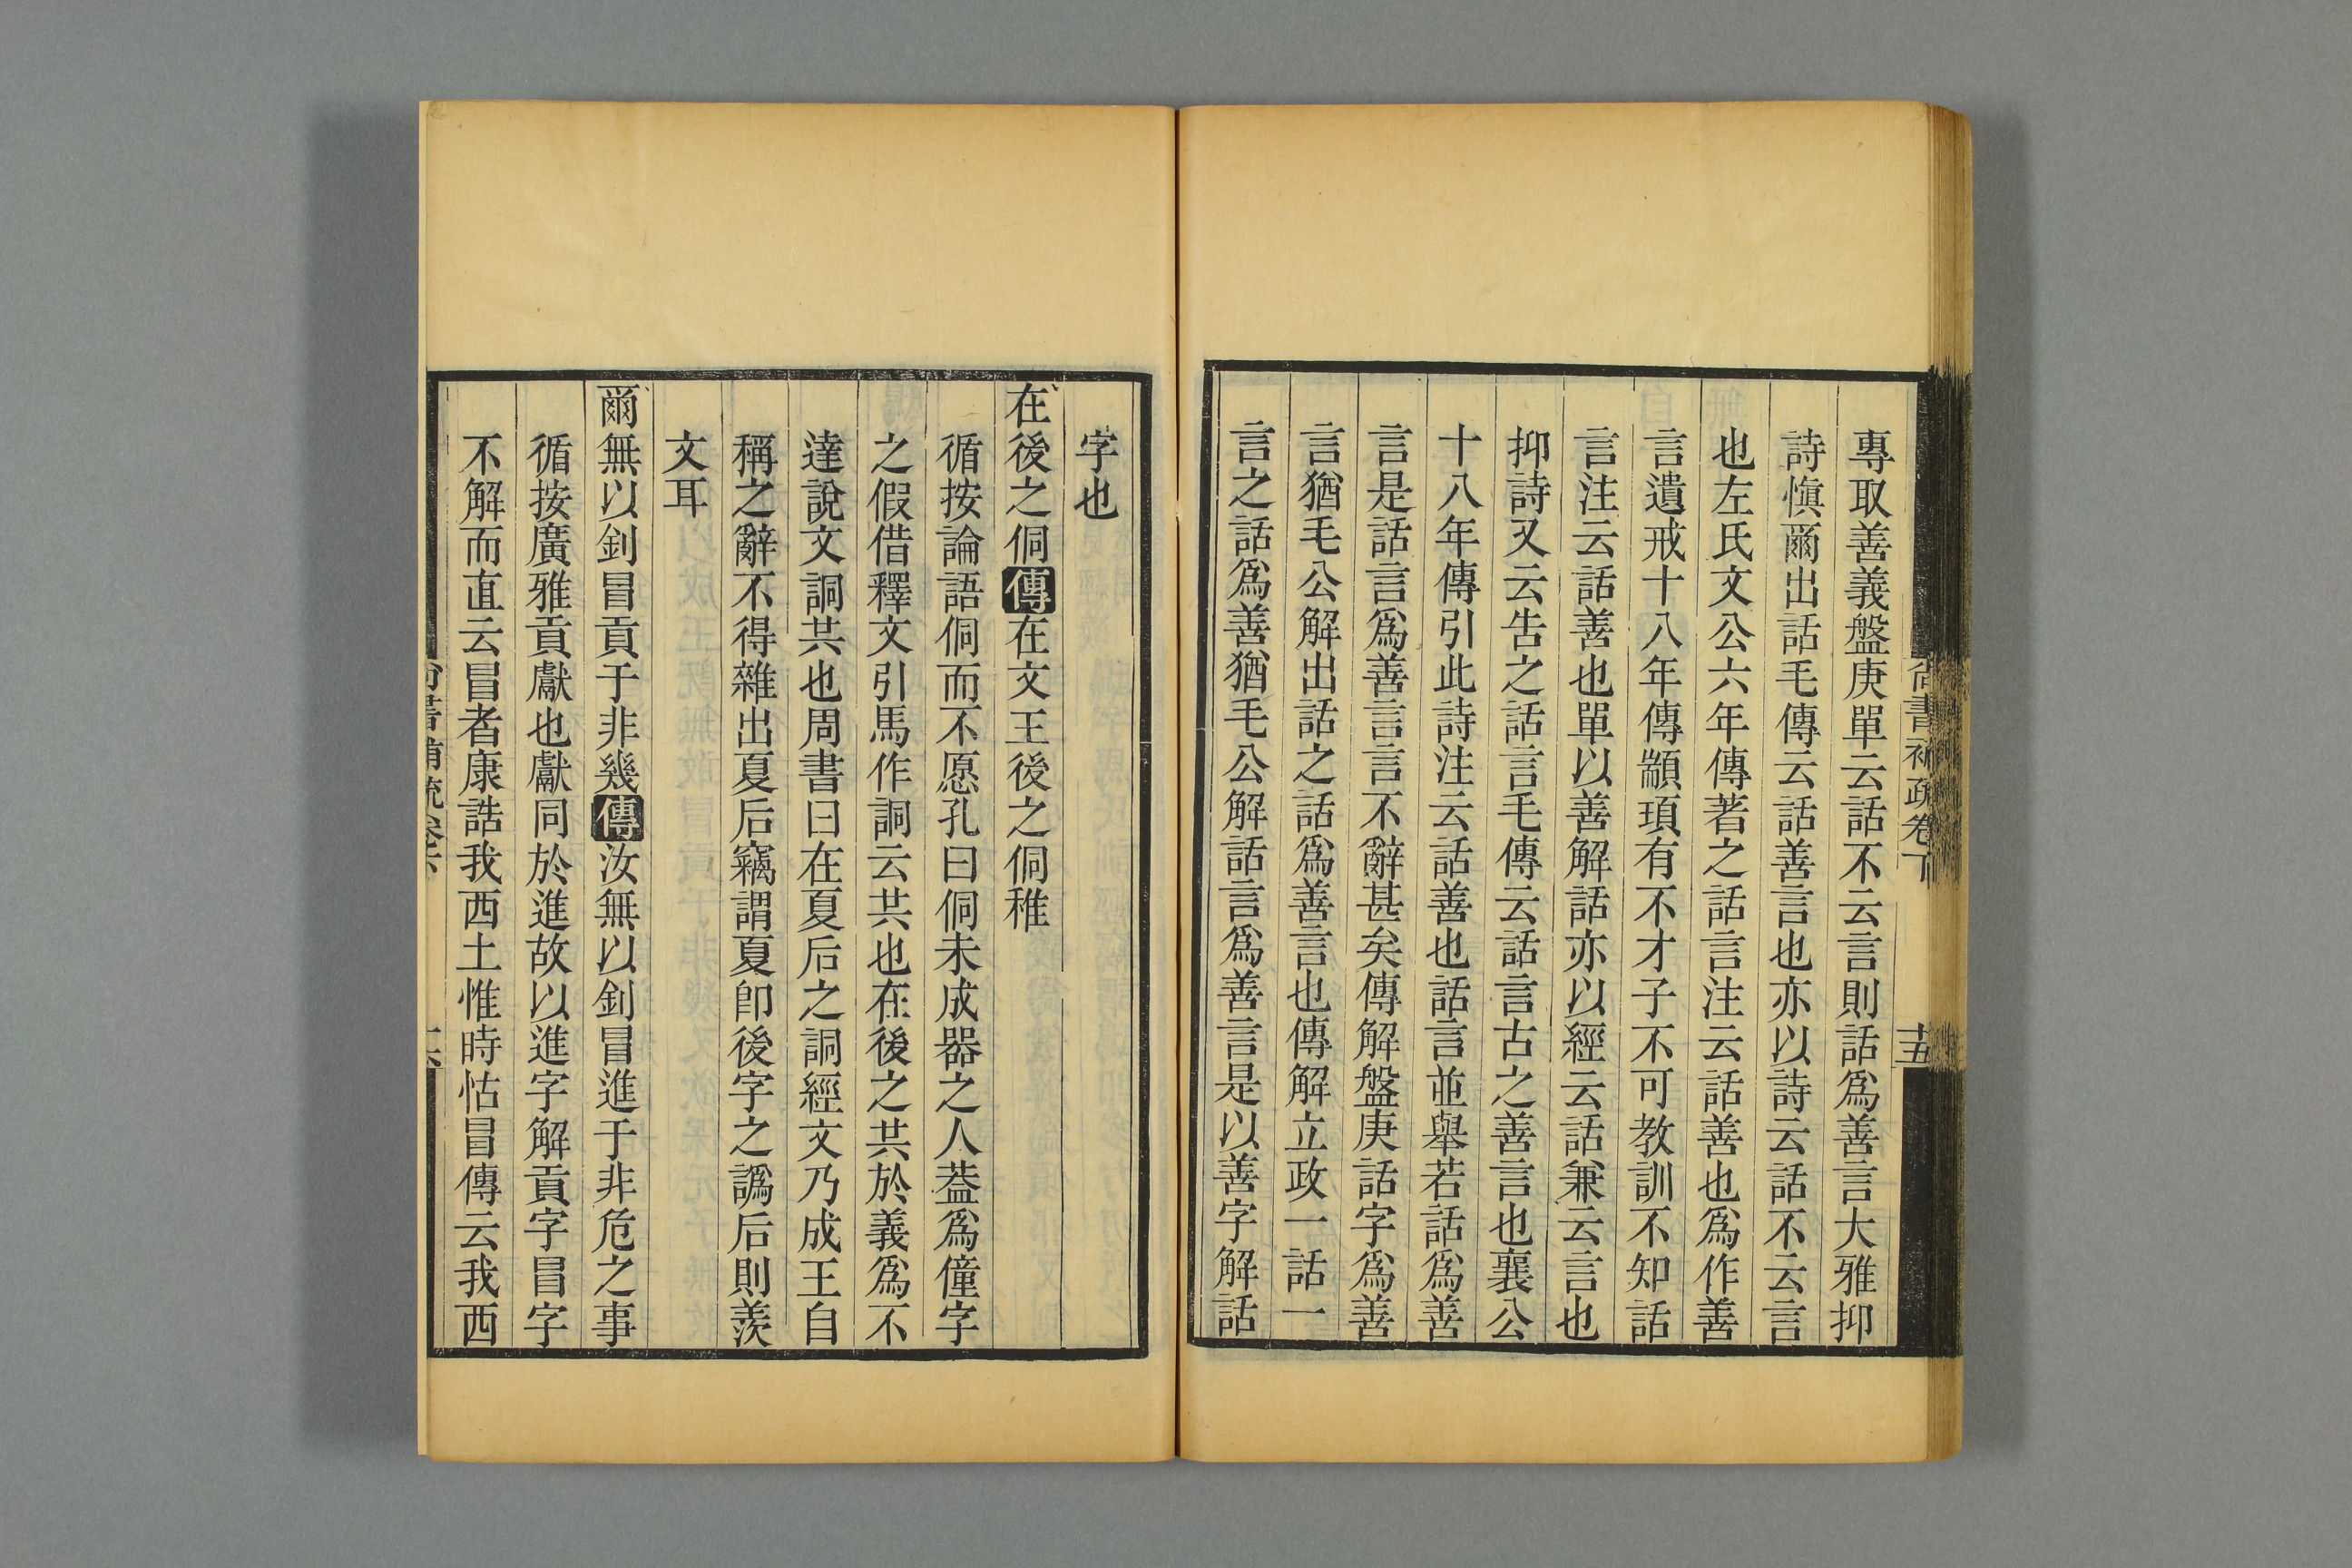 尚書補疏卷下
十五
專取善義盤庚單云話不云言則話爲善言大雅抑
詩愼爾出話毛傳云話善言也亦以詩云話不云言
也左氏文公六年傳著之話言注云話善也爲作善
言遺戒十八年傳顓頊有不才子不可教訓不知話
言注云話善也單以善解話亦以經云話兼云言也
抑詩又云告之話言毛傳云話言古之善言也襄公
十八年傳引此詩注云話善也話言並舉若話爲善
言是話言爲善言言不辭甚矣傳解盤庚話字爲善
言猶毛公解出話之話爲善言也傳解立政一話一
言之話爲善猶毛公解話言爲善言是以善字解話
字也
在後之侗傳在文王後之侗稚
循按論語侗而不愿孔曰侗未成器之人葢爲僮字
之假借釋文引馬作詷云共也在後之共於義爲不
達說文詷共也周書曰在夏后之詷經文乃成王自
稱之辭不得雜出夏后竊謂夏卽後字之譌后則羨
文耳
爾無以釗冒貢于非幾傳汝無以釗冒進于非危之事
循按廣雅貢獻也獻同於進故以進字解貢字冒字
不解而直云冒者康誥我西土惟時怙冒傳云我西